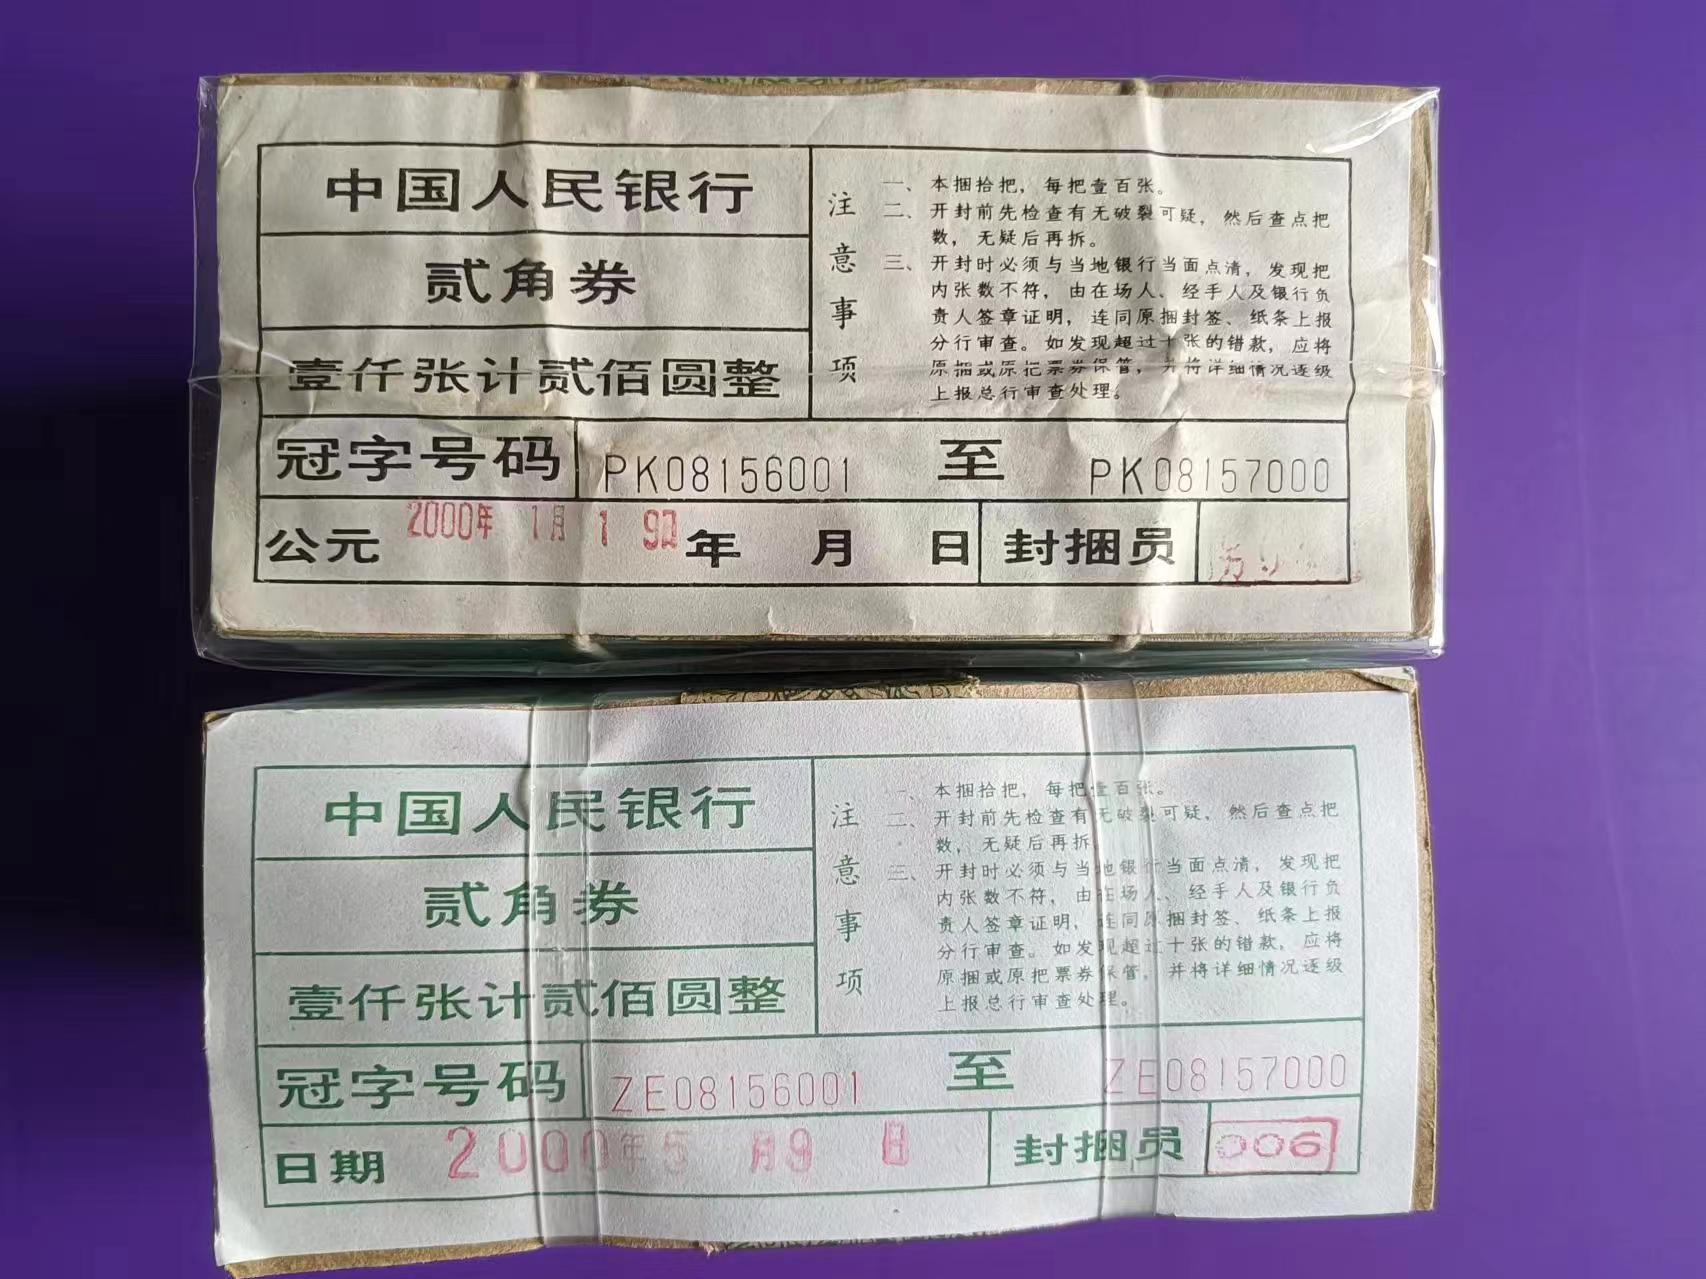 中国人民银行
贰角券
壹仟张计贰佰圆整
注意事项
一、本捆拾把，每把壹百张。
二、开封前先检查有无破裂可疑，然后查点把
数，无疑后再拆。
三、开封时必须与当地银行当面点清，发现把
内张数不符，由在场人、经手人及银行负
责人签章证明，连同原捆封签、纸条上报
分行审查。如发现超过十张的错款，应将
原捆或原把票券保管，并将详细情况逐级
上报总行审查处理。
冠字号码 PK08156001 至 PK08157000
公元 2000年 1月 19日 年 月 日 封捆员
中国人民银行
贰角券
壹仟张计贰佰圆整
注意事项
一、本捆拾把，每把壹百张。
二、开封前先检查有无破裂可疑，然后查点把
数，无疑后再拆
三、开封时必须与当地银行当面点清，发现把
内张数不符，由在场人、经手人及银行负
责人签章证明，连同原捆封签、纸条上报
分行审查。如发现超过十张的错款，应将
原捆或原把票券保管，并将详细情况逐级
上报总行审查处理。
冠字号码 ZE08156001 至 ZE08157000
日期 2000年5月9日 封捆员 006